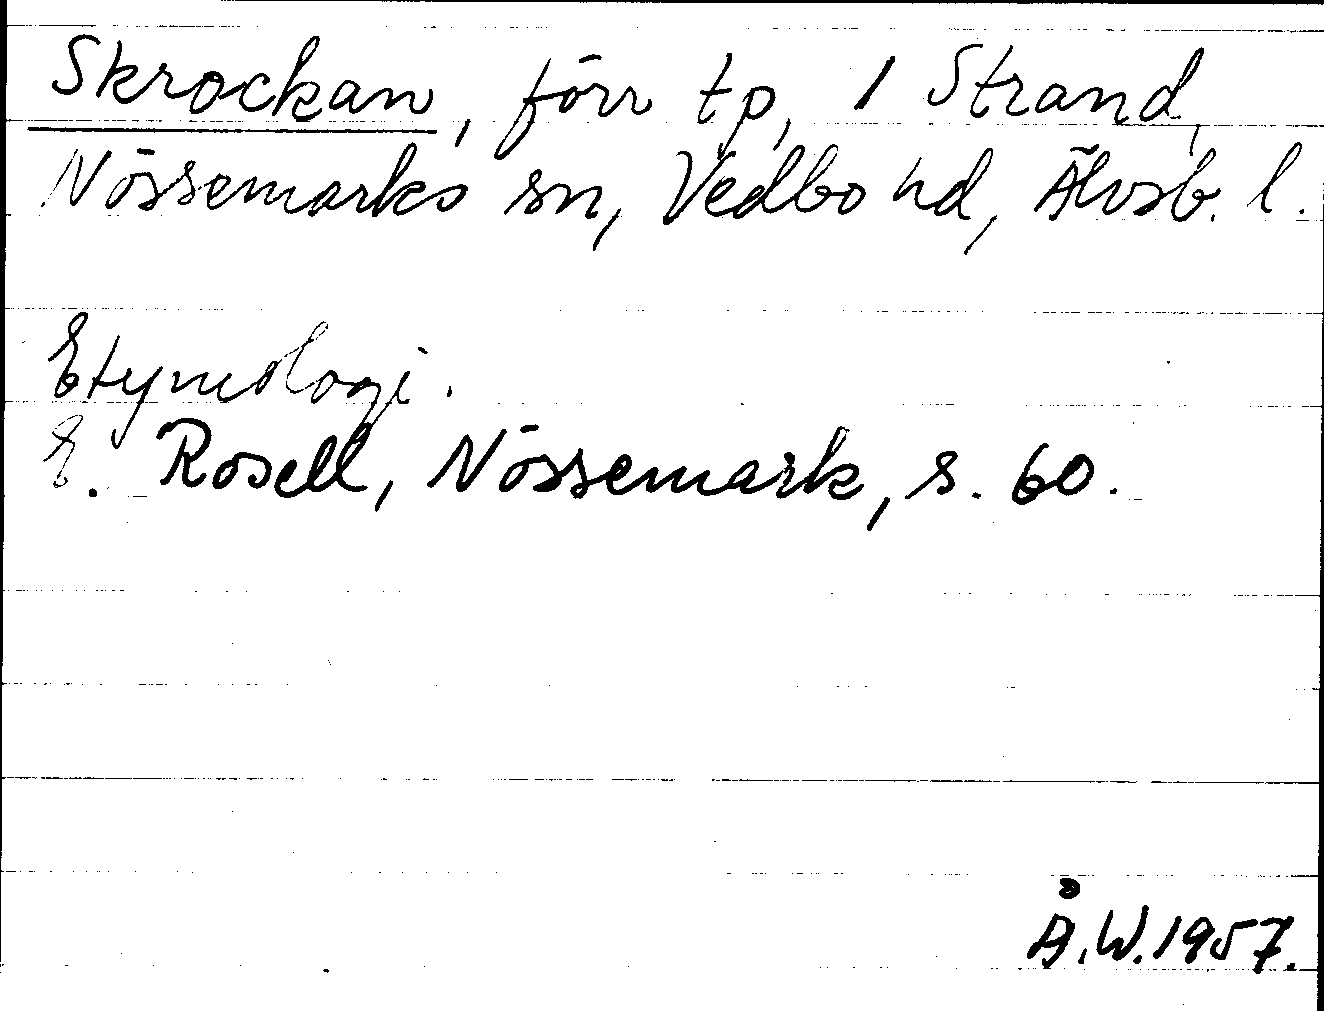 Skrockan, förr tp, 1 Strand,
Nössemarks sn, Vedbo hd, Älvsb. l.
Etymologi.
E. Rosell, Nössemark, s. 60.
Å.W. 1957.